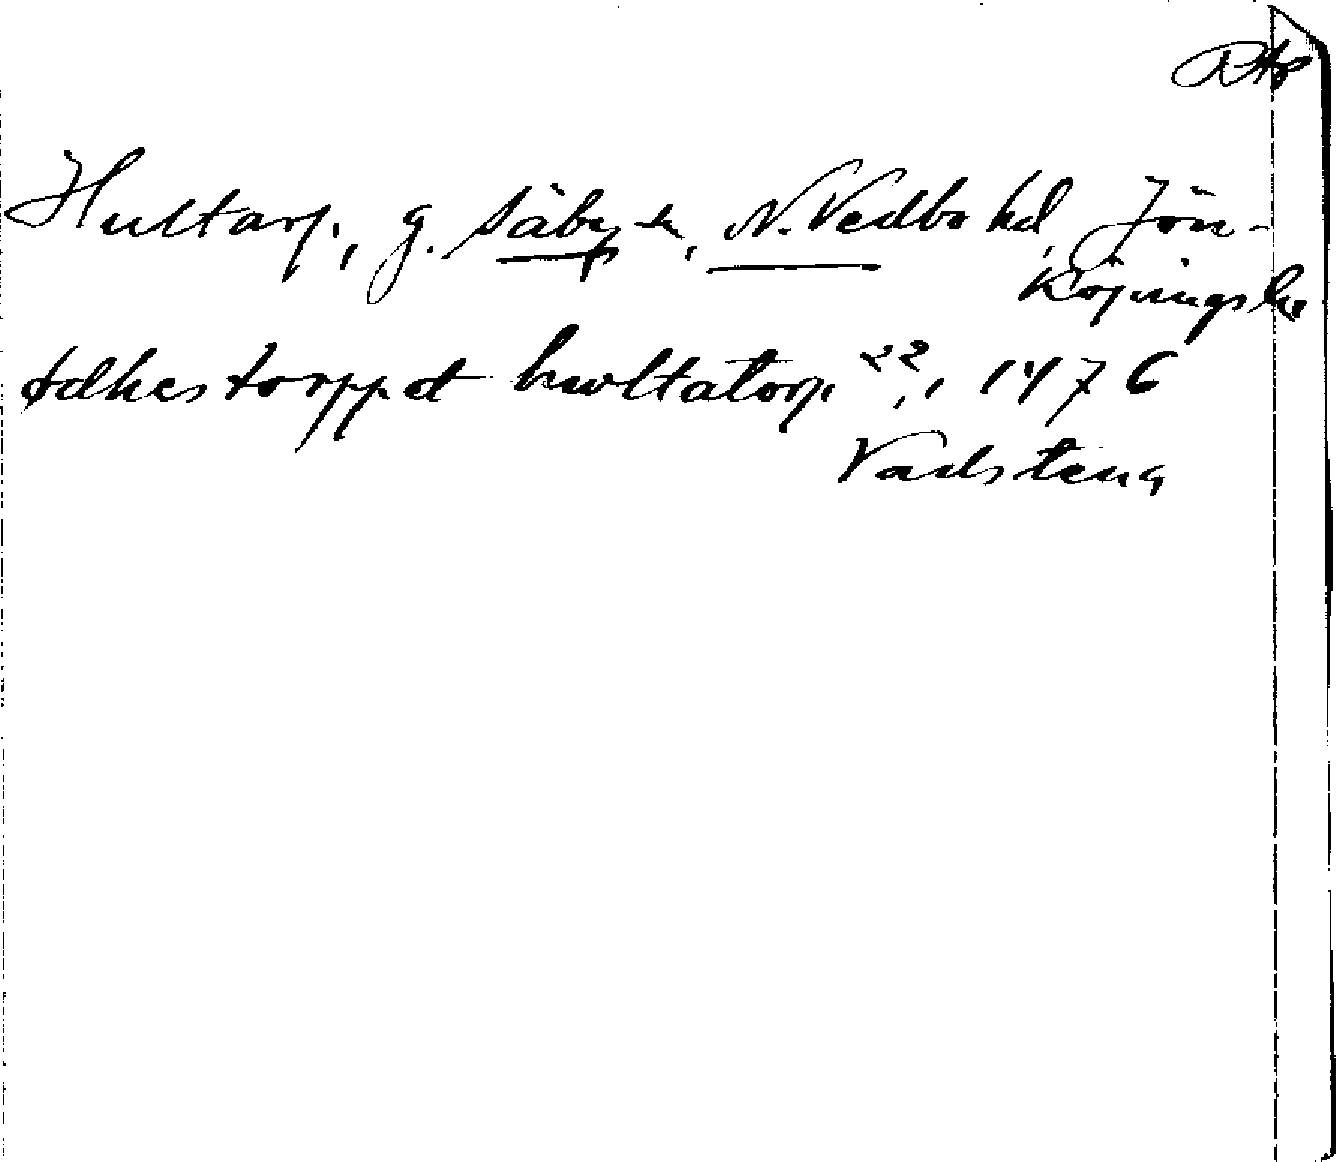 RAp
Hultarp, g. Säby sn, N. Vedbo hd, Jön-
köpings län
ödhestorppet hwltatorp 22, 1476
Vadstena